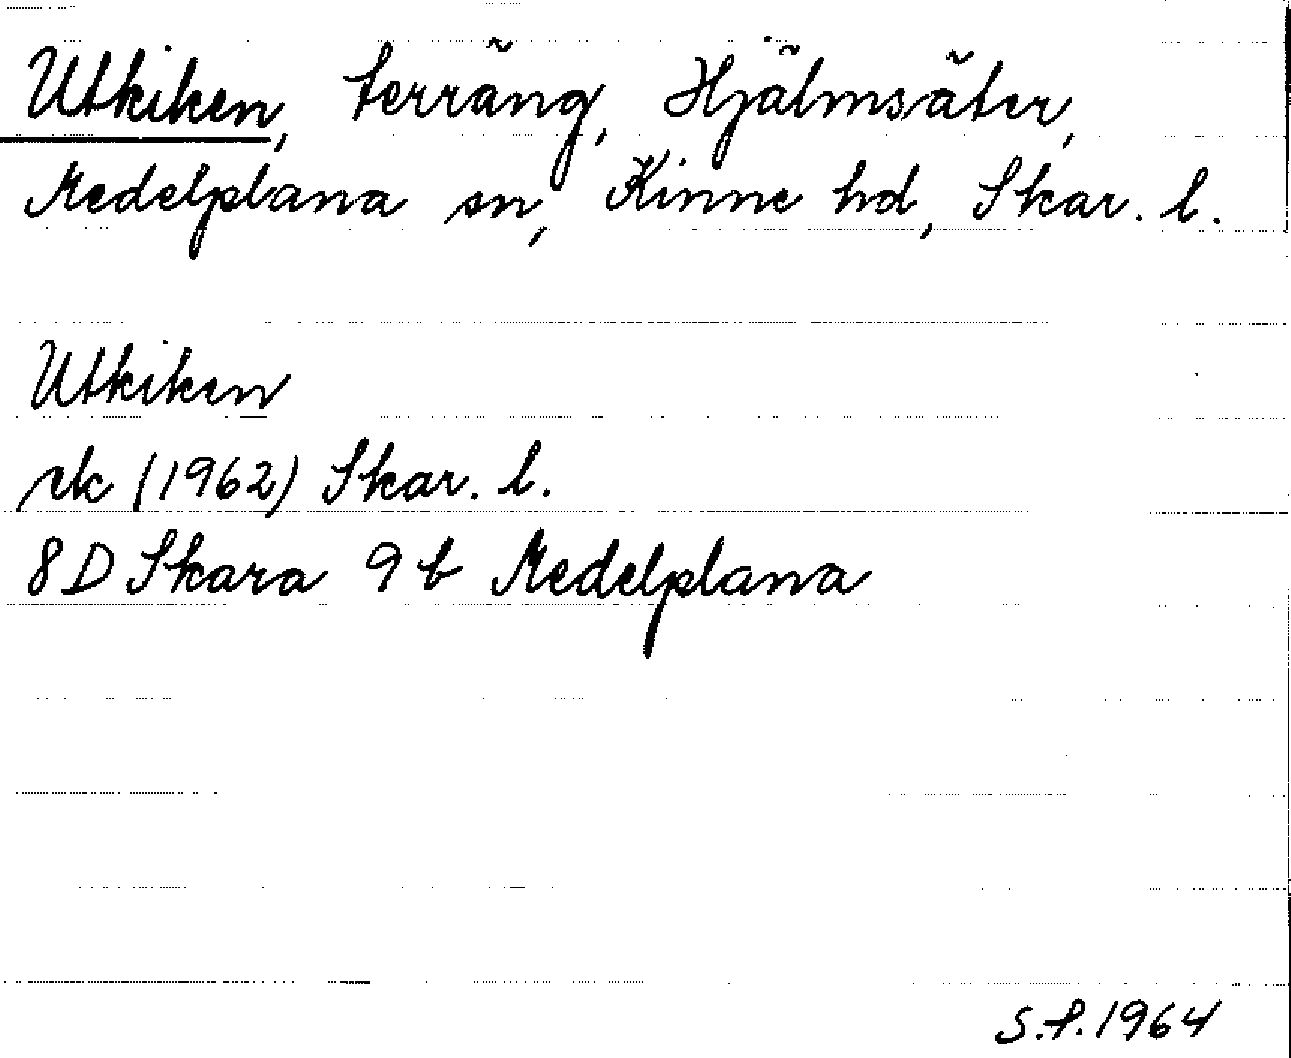 Utkiken, terräng, Hjälmsäter,
Medelplana sn, Kinne hd, Skar. l.
Utkiken
rk (1962) Skar. l.
8 D Skara 9 b Medelplana
S.P. 1964